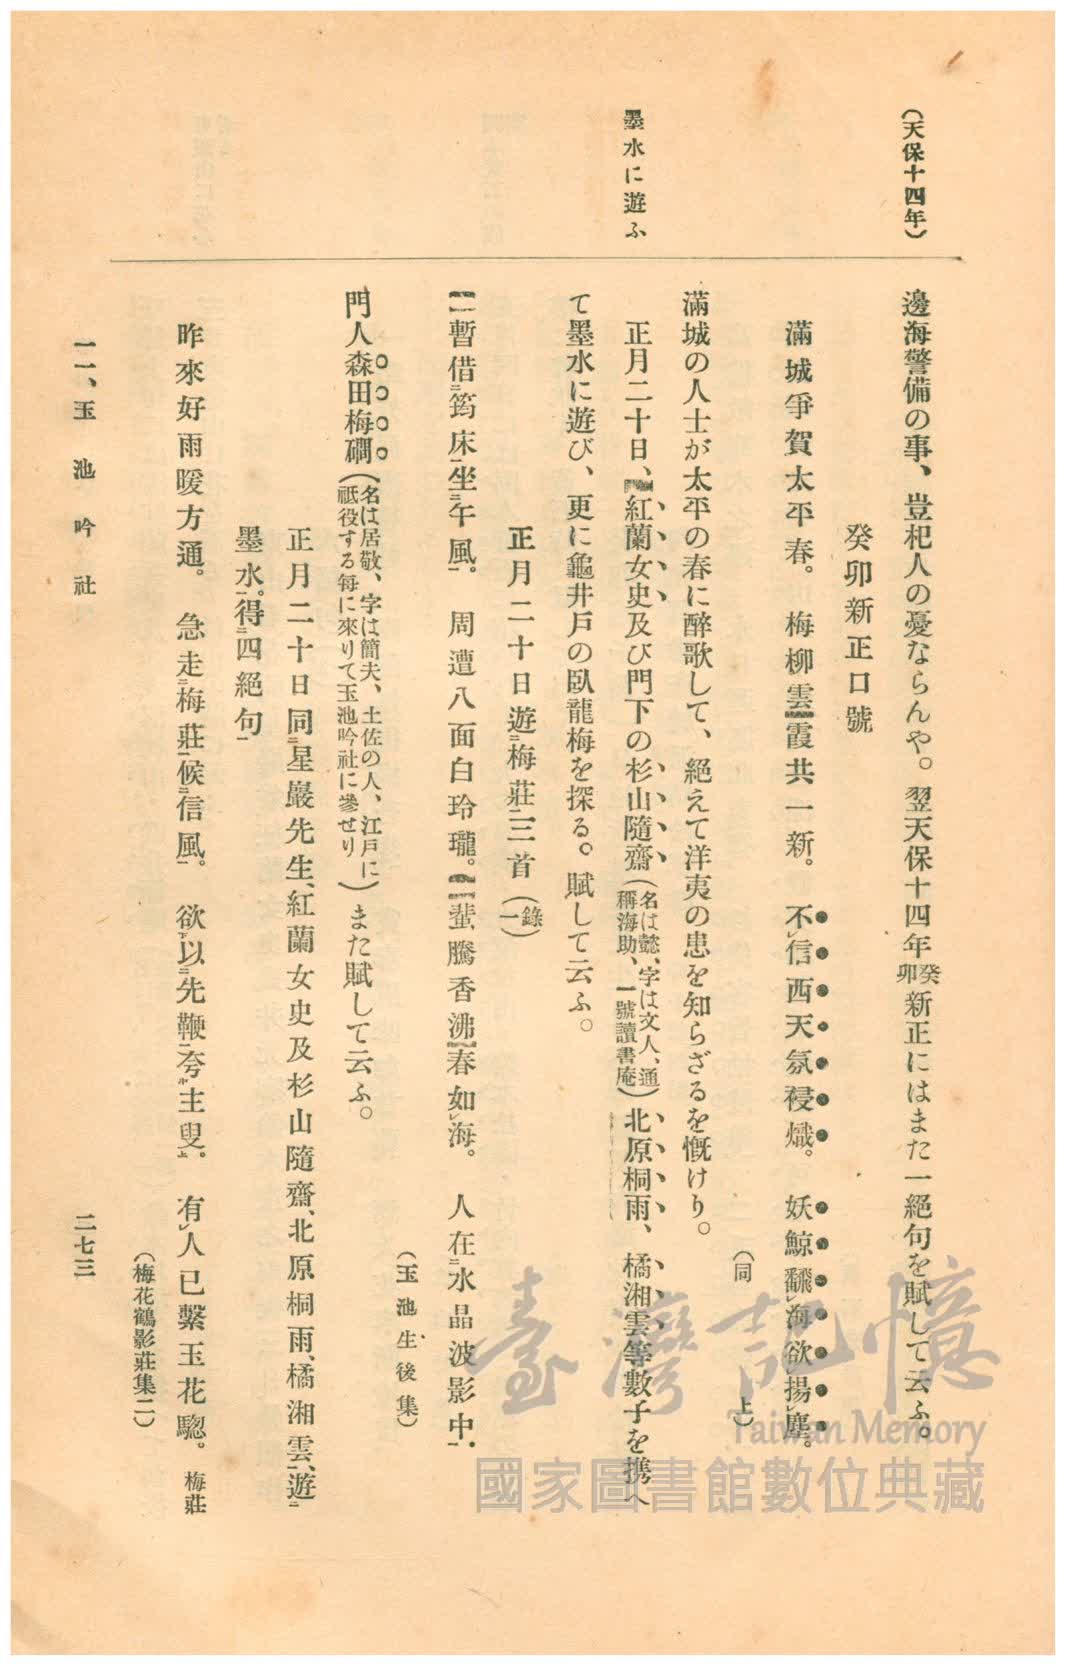 (天保十四年)
邊海警備の事、豈杞人の憂ならんや。翌天保十四年癸卯新正にはまた一絕句を賦して云ふ。
癸卯新正口號
滿城爭賀太平春。 梅柳雲霞共一新。 不レ信西天氛祲熾。 妖鯨飜レ海欲レ揚レ塵。
(同 上)
滿城の人士が太平の春に醉歌して、絕えて洋夷の患を知らざるを慨けり。
墨水に遊ふ
正月二十日、紅蘭女史及び門下の杉山隨齋(名は懿、字は文人、通稱海助、一號讀書庵)北原桐雨、橘湘雲等數子を携へ
て墨水に遊び、更に龜井戸の臥龍梅を探る。賦して云ふ。
正月二十日遊二梅莊一三首(錄一)
暫借二筠床一坐二午風一。 周遭八面白玲瓏。 蜚騰香沸春如レ海。 人在二水晶波影中一。
(玉池生後集)
門人森田梅礀(名は居敬、字は簡夫、土佐の人、江戸に祗役する每に來りて玉池吟社に參せり)また賦して云ふ。
正月二十日同二星巖先生、紅蘭女史及杉山隨齋、北原桐雨、橘湘雲一、遊二
墨水一。得二四絕句一
昨來好雨暖方通。 急走二梅莊一候二信風一。 欲下以二先鞭一夸中主叟上。 有レ人已繫玉花驄。 梅莊
(梅花鶴影莊集二)
一一、玉池吟社
二七三
臺灣記憶
Taiwan Memory
國家圖書館數位典藏